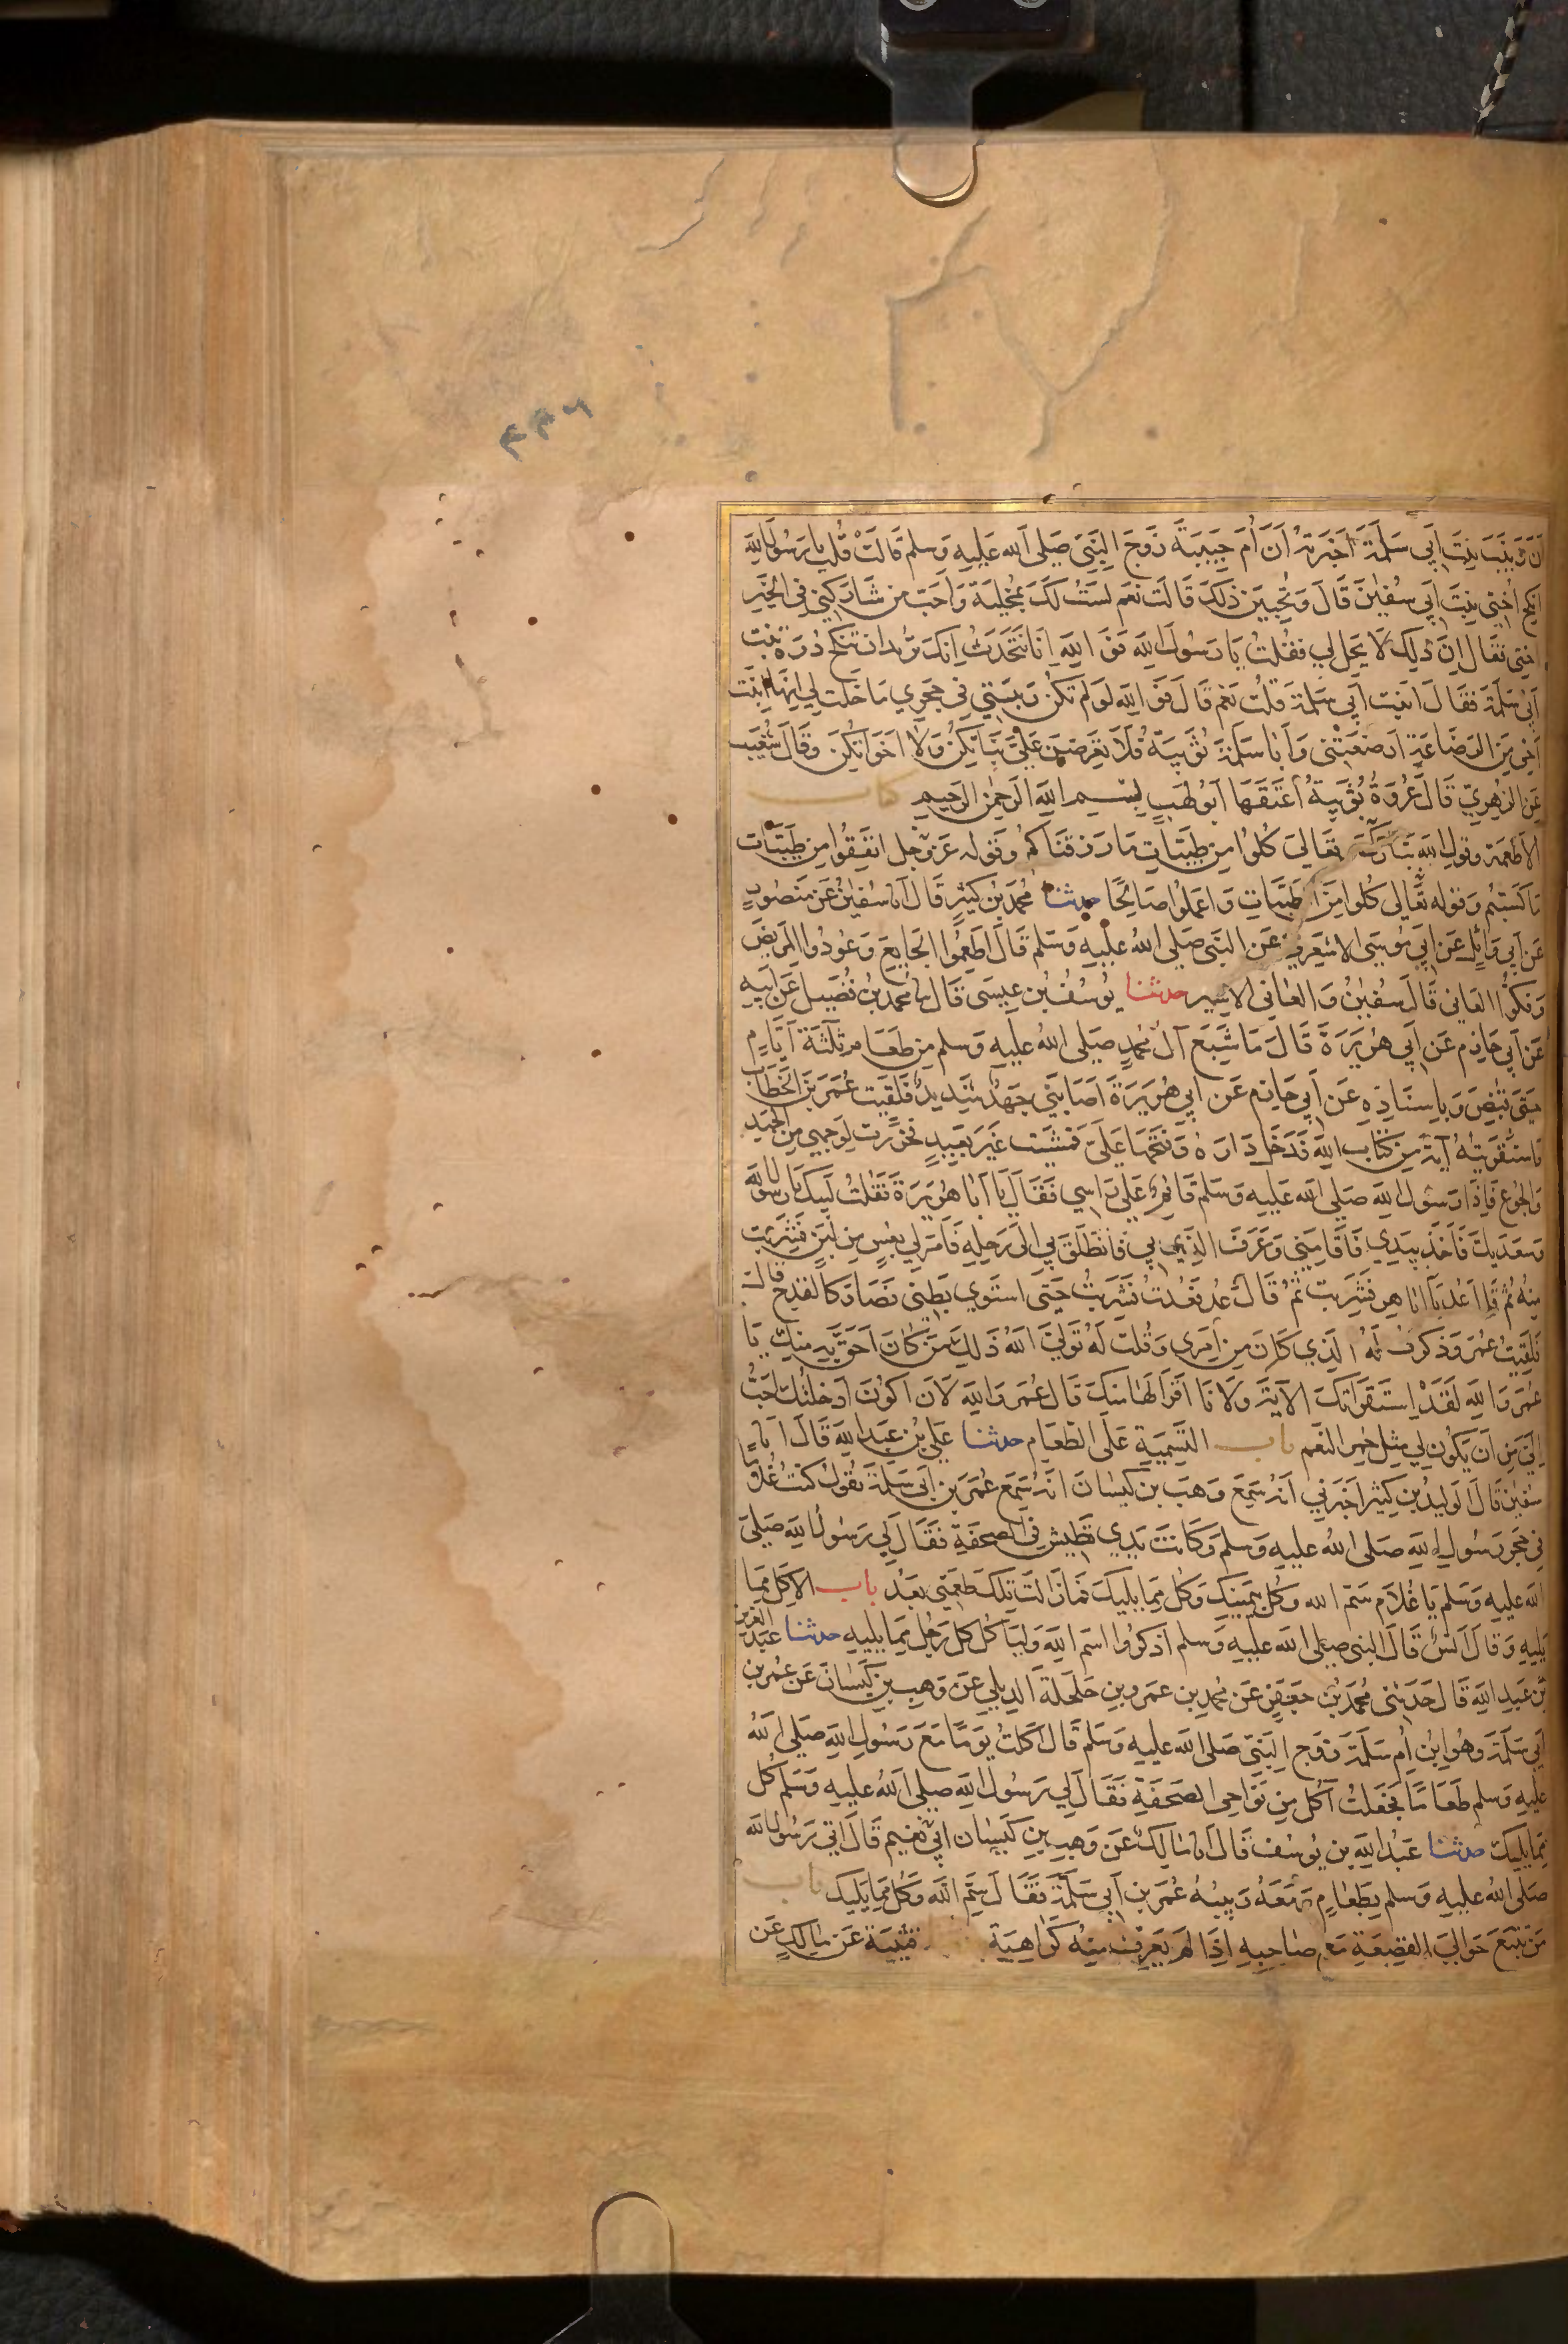 ٤٣٦
ان زينب بنت ابي سلمة اخبرته ان ام حبيبة زوج النبي صلى الله عليه وسلم قالت قلت يا رسول الله
انكح اختي بنت ابي سفين قال وتحبين ذلك قالت نعم لست لك بمخلية واحب من شاركني في الخير
اختي فقال ان ذلك لا يحل لي فقلت يا رسول الله فو الله انا نتحدث انك تريد ان تنكح درة بنت
ابي سلمة فقال ابنت ابي سلمة قلت نعم قال فو الله لو لم تكن ربيبتي في حجري ما حلت لي انها ابنت
اخي من الرضاعة ارضعتني وابا سلمة ثويبة فلا تعرضن علي بناتكن ولا اخواتكن وقال شعيب
عن الزهري قال عروة ثويبة اعتقها ابو لهب بسم الله الرحمن الرحيم كتاب
الاطعمة وقول الله تبارك تعالى كلوا من طيبات ما رزقناكم وقوله عز وجل انفقوا من طيبات
ما كسبتم وقوله تعالى كلوا من الطيبات واعملوا صالحا حدثنا محمد بن كثير قال انا سفين عن منصور
عن ابي وائل عن ابي موسى الاشعري عن النبي صلى الله عليه وسلم قال اطعموا الجايع وعودوا المريض
وفكوا العاني قال سفين والعاني الاسير حدثنا يوسف بن عيسى قال نا محمد بن فضيل عن ابيه
عن ابي حازم عن ابي هريرة قال ما شبع آل محمد صلى الله عليه وسلم من طعام ثلثة ايام
حتى قبض وباسناده عن ابي حازم عن ابي هريرة اصابني جهد شديد فلقيت عمر بن الخطاب
فاستقريته آية من كتاب الله فدخل داره وفتحها علي فمشيت غير بعيد فخررت لوجهي من الجهد
والجوع فاذا رسول الله صلى الله عليه وسلم قائم على راسي فقال يا ابا هريرة فقلت لبيك يا رسول الله
وسعديك فاخذ بيدي فاقامني وعرف الذي بي فانطلق بي الى رحله فامر لي بعس من لبن فشربت
منه ثم قال اعد يا ابا هر فشربت ثم قال عد فعدت فشربت حتى استوي بطني فصار كالقدح قال
فلقيت عمر وذكرت له الذي كان من امري وقلت له تولى الله ذلك من كان احق به منك يا
عمر والله لقد استقراتك الآية ولانا اقرا لها منك قال عمر والله لان اكون ادخلتك احب
الي من ان يكون لي مثل حمر النعم باب التسمية على الطعام حدثنا علي بن عبد الله قال انا
سفين قال الوليد بن كثير اخبرني انه سمع وهب بن كيسان انه سمع عمر بن ابي سلمة يقول كنت غلاما
في حجر رسول الله صلى الله عليه وسلم وكانت يدي تطيش في الصحفة فقال لي رسول الله صلى
الله عليه وسلم يا غلام سم الله وكل بيمينك وكل مما يليك فما زالت تلك طعمتي بعد باب الاكل مما
يليه وقال انس قال النبي صلى الله عليه وسلم اذكروا اسم الله وليأكل كل رجل مما يليه حدثنا عبد العزيز
بن عبد الله قال حدثني محمد بن جعفر عن محمد بن عمرو بن حلحلة الديلي عن وهب بن كيسان عن عمر بن
ابي سلمة وهو ابن ام سلمة زوج النبي صلى الله عليه وسلم قال اكلت يوما مع رسول الله صلى الله
عليه وسلم طعاما فجعلت آكل من نواحي الصحفة فقال لي رسول الله صلى الله عليه وسلم كل
مما يليك حدثنا عبد الله بن يوسف قال انا مالك عن وهب بن كيسان ابي نعيم قال اتي رسول الله
صلى الله عليه وسلم بطعام ومعه ربيبه عمر بن ابي سلمة فقال سم الله وكل مما يليك باب
من تتبع حوالي القصعة مع صاحبه اذا لم يعرف منه كراهية قتيبة عن مالك عن